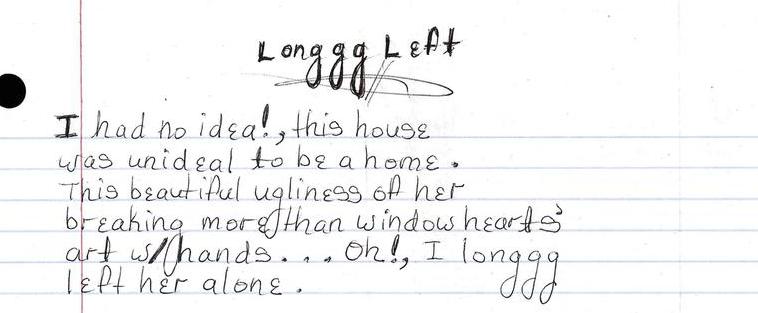 Longgg Left
I had no idea!, this house
was unideal to be a home.
This beautiful ugliness of her
breaking more than window hearts'
art w/ hands... Oh!, I longgg
left her alone.